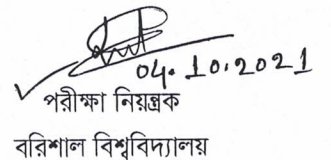 04.10.2021
পরীক্ষা নিয়ন্ত্রক
বরিশাল বিশ্ববিদ্যালয়